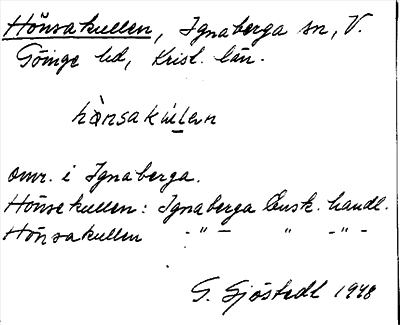 Hönsakullen, Ignaberga sn, V.
Göinge hd, Krist. län.
hònsakúllan
omr. i Ignaberga.
Hönsekullen: Ignaberga Ensk. handl.
Hönsakullen -"- " -"-
G. Sjöstedt 1948